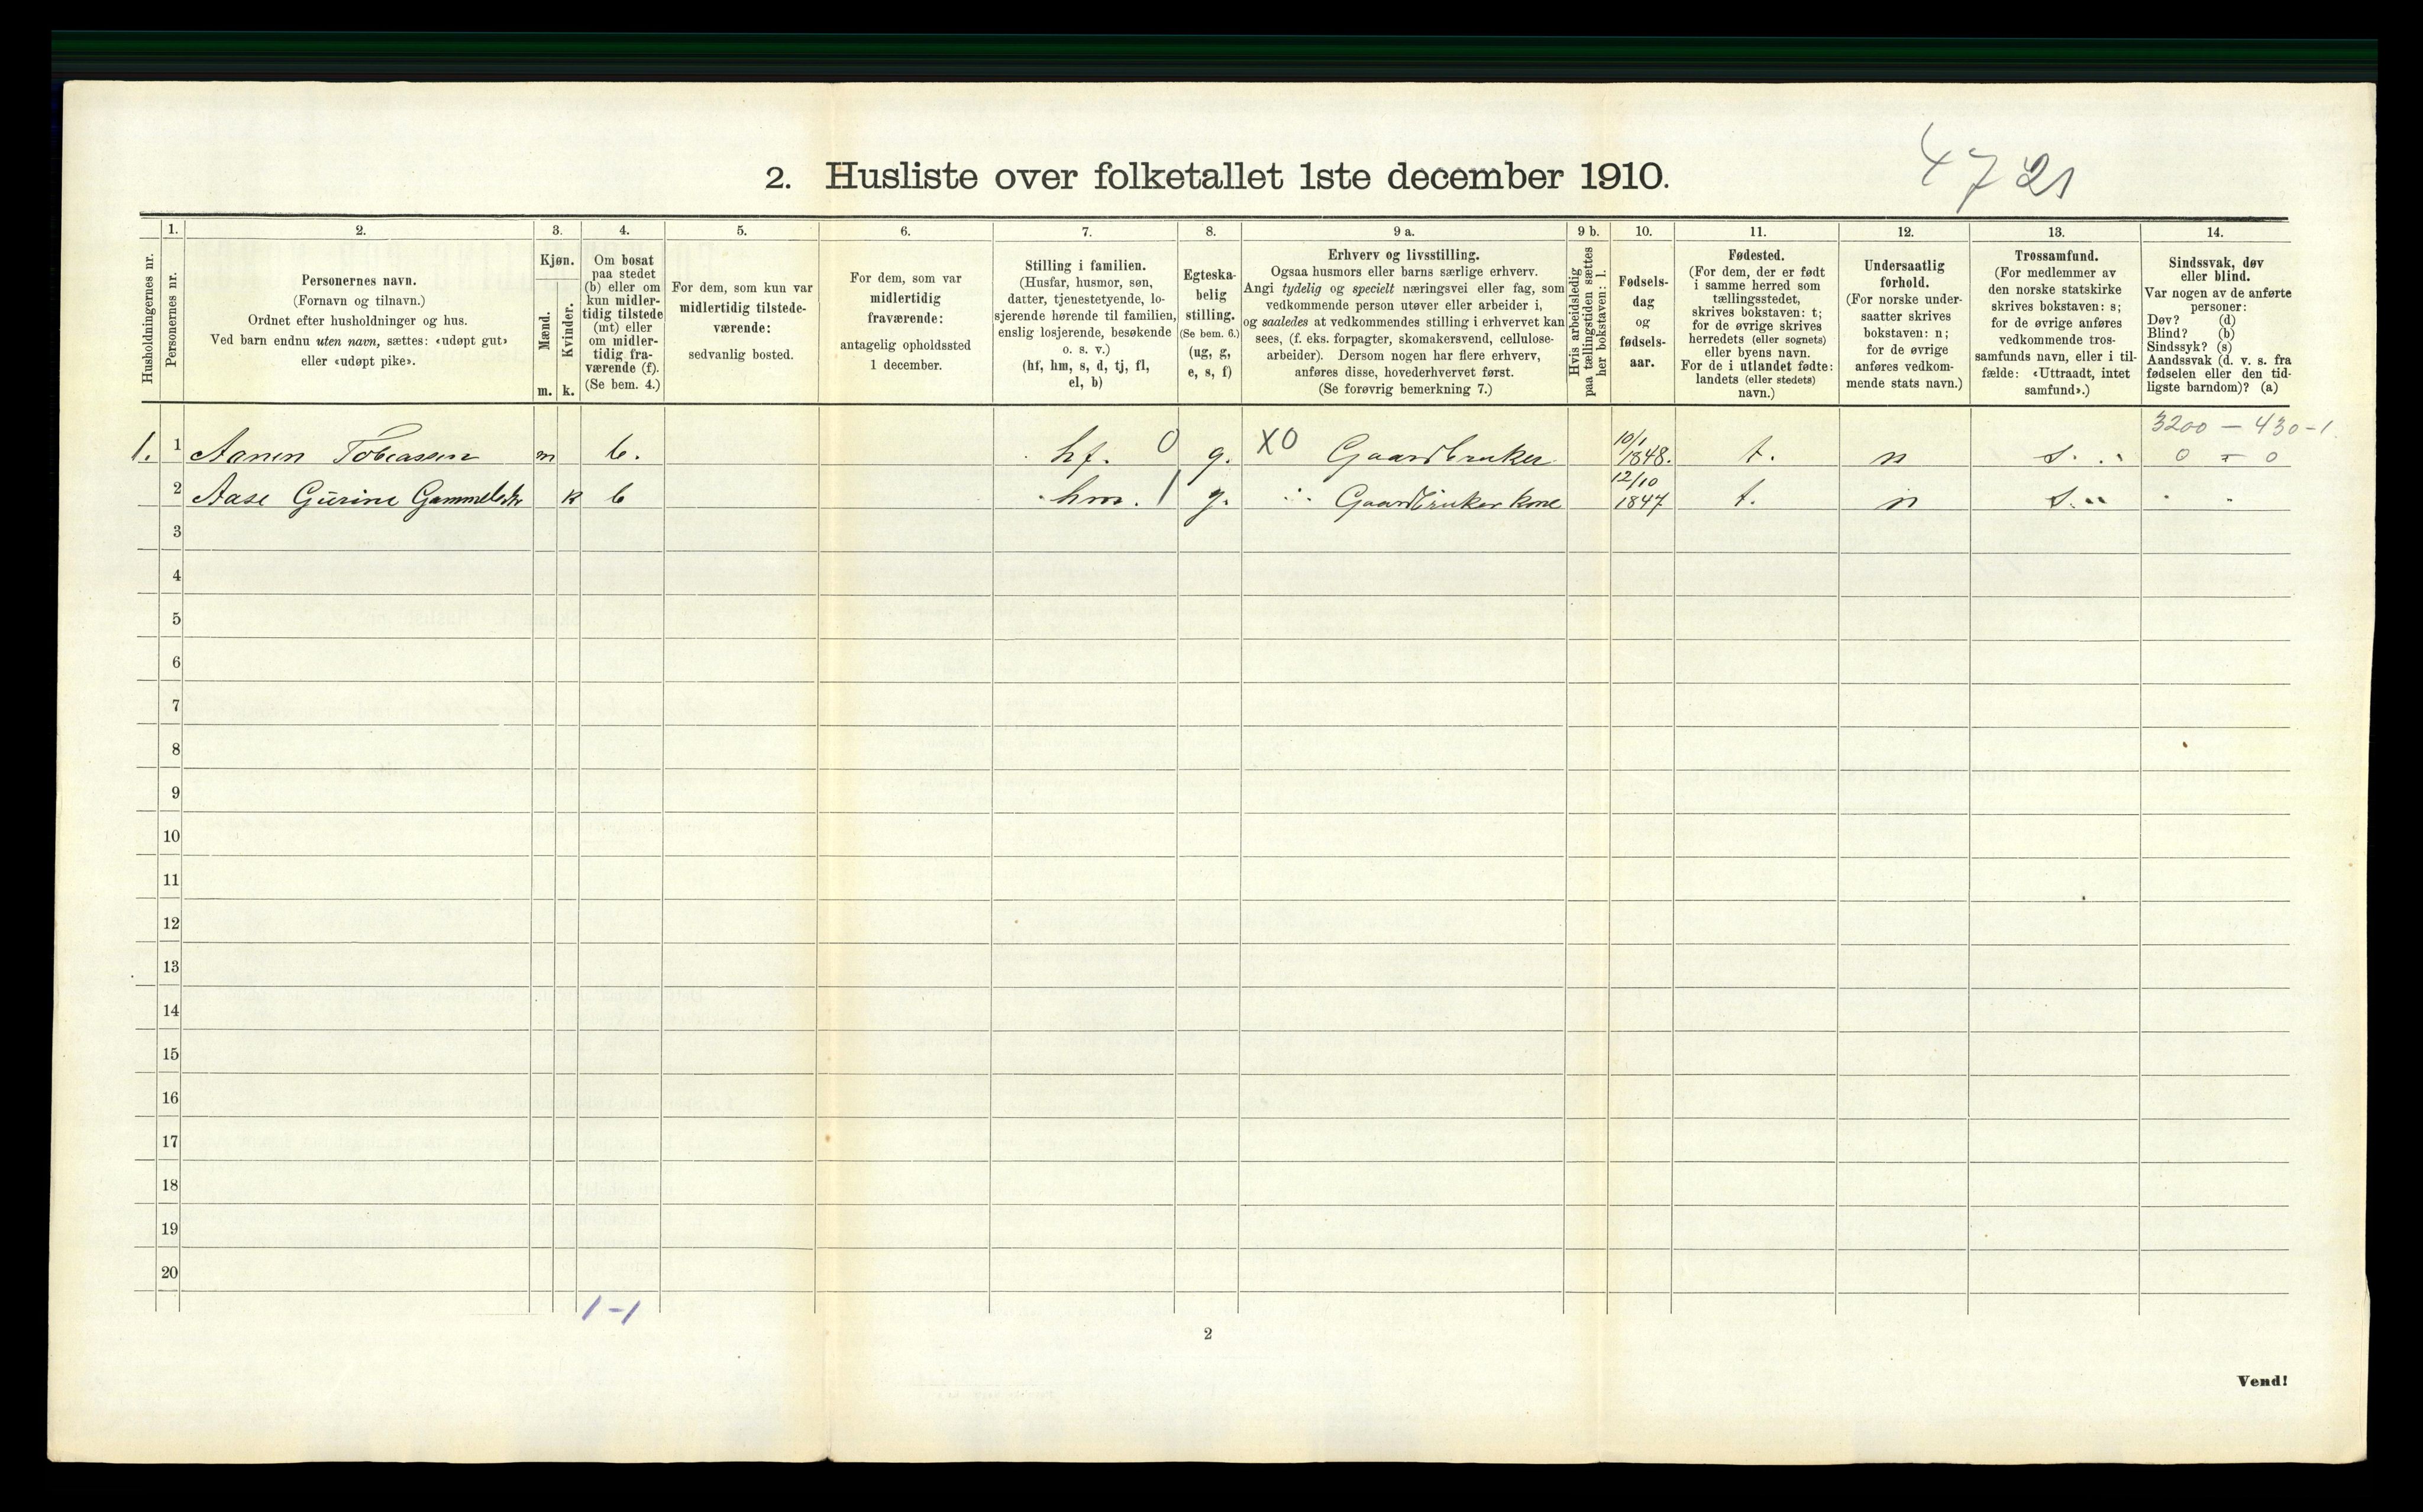 4721
2. Husliste over folketallet 1ste december 1910.
Husholdningernes nr.
1.
Personernes nr.
2.
Personernes navn.
(Fornavn og tilnavn.)
Ordnet efter husholdninger og hus.
Ved barn endnu uten navn, sættes: «udøpt gut»
eller «udøpt pike».
3.
Kjøn.
Mænd.
Kvinder.
m. k.
4.
Om bosat
paa stedet
(b) eller om
kun midler-
tidig tilstede
(mt) eller
om midler-
tidig fra-
værende (f).
(Se bem. 4.)
5.
For dem, som kun var
midlertidig tilstede-
værende:
sedvanlig bosted.
6.
For dem, som var
midlertidig
fraværende:
antagelig opholdssted
1 december.
7.
Stilling i familien.
(Husfar, husmor, søn,
datter, tjenestetyende, lo-
sjerende hørende til familien,
enslig losjerende, besøkende
o. s. v.)
(hf, hm, s, d, tj, fl,
el, b)
8.
Egteska-
belig
stilling.
(Se bem. 6.)
(ug, g,
e, s, f)
9 a.
Erhverv og livsstilling.
Ogsaa husmors eller barns særlige erhverv.
Angi tydelig og specielt næringsvei eller fag, som
vedkommende person utøver eller arbeider i,
og saaledes at vedkommendes stilling i erhvervet kan
sees, (f. eks. forpagter, skomakersvend, cellulose-
arbeider). Dersom nogen har flere erhverv,
anføres disse, hovederhvervet først.
(Se forøvrig bemerkning 7.)
9 b.
Hvis arbeidsledig
paa tællingstiden sættes
her bokstaven: l.
10.
Fødsels-
dag
og
fødsels-
aar.
11.
Fødested.
(For dem, der er født
i samme herred som
tællingsstedet,
skrives bokstaven: t;
for de øvrige skrives
herredets (eller sognets)
eller byens navn.
For de i utlandet fødte:
landets (eller stedets)
navn.)
12.
Undersaatlig
forhold.
(For norske under-
saatter skrives
bokstaven: n;
for de øvrige
anføres vedkom-
mende stats navn.)
13.
Trossamfund.
(For medlemmer av
den norske statskirke
skrives bokstaven: s;
for de øvrige anføres
vedkommende tros-
samfunds navn, eller i til-
fælde: «Uttraadt, intet
samfund».)
14.
Sindssvak, døv
eller blind.
Var nogen av de anførte
personer:
Døv? (d)
Blind? (b)
Sindssyk? (s)
Aandssvak (d. v. s. fra
fødselen eller den tid-
ligste barndom)? (a)
3200 - 430-1
1. 1 Aanen Tobiassen m b. hf. 0 g. X0 Gaardbruker 10/1 1848. t. n s. 0 = 0
2 Aase Gurine k b hm. 1 g. Gaardbruker kone 12/10 1847 t. n s.
3
4
5
6
7
8
9
10
11
12
13
14
15
16
17
18
19
20
1-1
2
Vend!